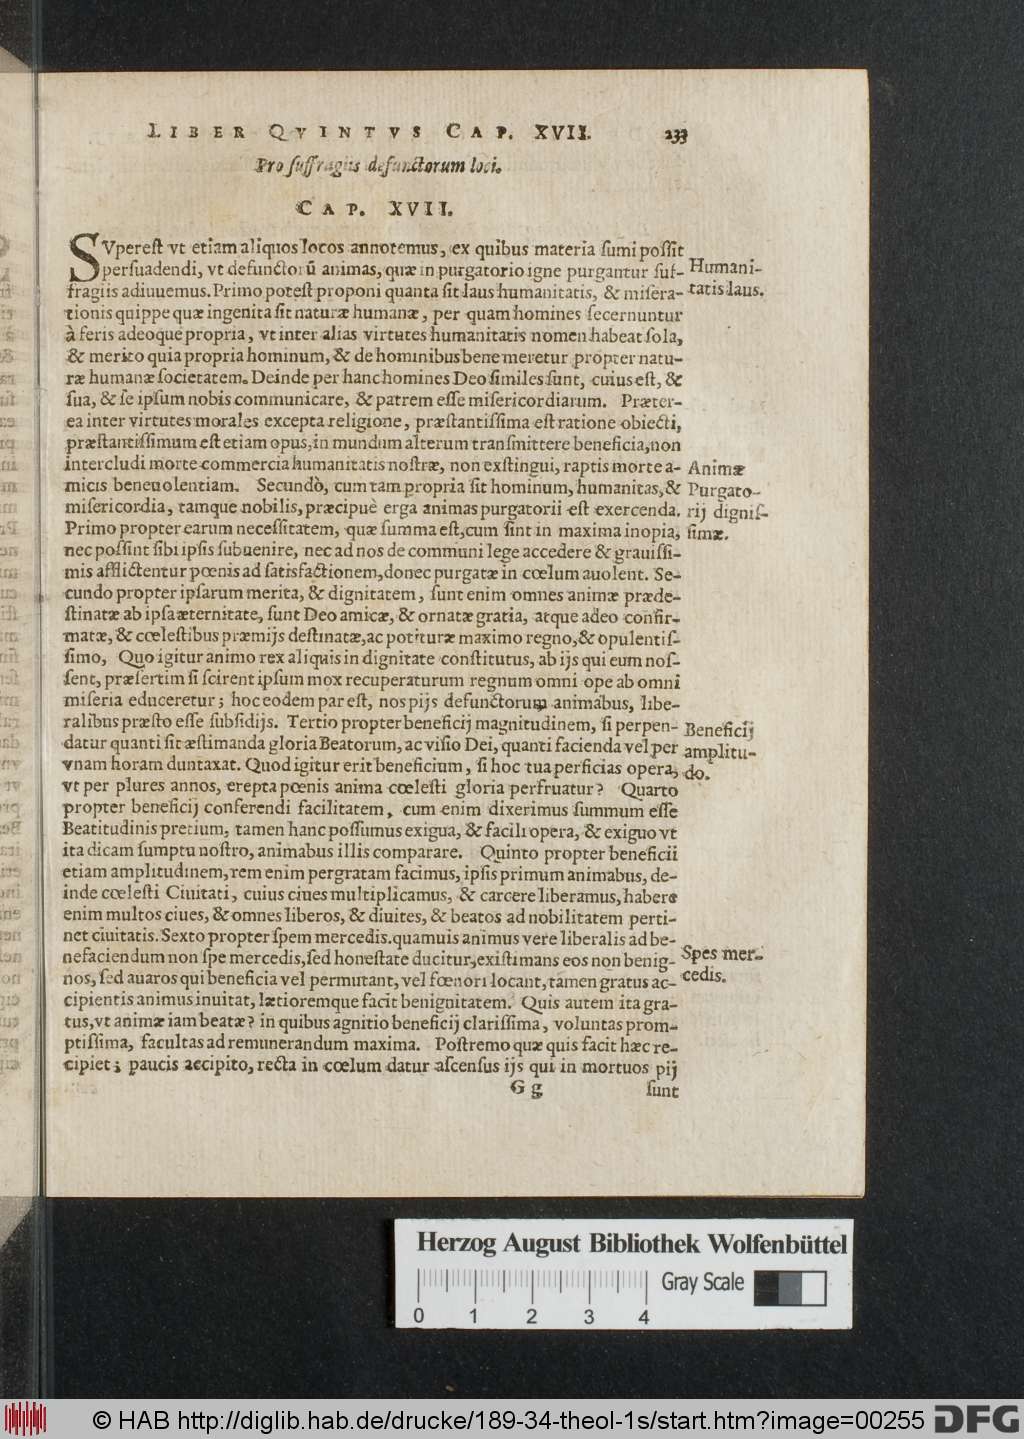 LIBER QVINTVS CAP. XVII. 233
Pro suffragiis defunctorum loci.
CAP. XVII.
SVperest vt etiam aliquos locos annotemus, ex quibus materia sumi possit
persuadendi, vt defunctorũ animas, quæ in purgatorio igne purgantur suf-
fragiis adiuuemus. Primo potest proponi quanta sit laus humanitatis, & misera-
tionis quippe quæ ingenita sit naturæ humanæ, per quam homines secernuntur
à feris adeoque propria, vt inter alias virtutes humanitatis nomen habeat sola,
& merito quia propria hominum, & de hominibus bene meretur propter natu-
ræ humanæ societatem. Deinde per hanc homines Deo similes sunt, cuius est, &
sua, & se ipsum nobis communicare, & patrem esse misericordiarum. Præter-
ea inter virtutes morales excepta religione, præstantissima est ratione obiecti,
præstantissimum est etiam opus, in mundum alterum transmittere beneficia, non
intercludi morte commercia humanitatis nostræ, non exstingui, raptis morte a-
micis beneuolentiam. Secundò, cum tam propria sit hominum, humanitas, &
misericordia, tamque nobilis, præcipuè erga animas purgatorii est exercenda.
Primo propter earum necessitatem, quæ summa est, cum sint in maxima inopia,
nec possint sibi ipsis subuenire, nec ad nos de communi lege accedere & grauissi-
mis afflictentur pœnis ad satisfactionem, donec purgatæ in cœlum auolent. Se-
cundo propter ipsarum merita, & dignitatem, sunt enim omnes animæ præde-
stinatæ ab ipsa æternitate, sunt Deo amicæ, & ornatæ gratia, atque adeo confir-
matæ, & cœlestibus præmijs destinatæ, ac potituræ maximo regno, & opulentis-
simo, Quo igitur animo rex aliquis in dignitate constitutus, ab ijs qui eum nos-
sent, præsertim si scirent ipsum mox recuperaturum regnum omni ope ab omni
miseria educeretur; hoc eodem par est, nos pijs defunctorum animabus, libe-
ralibus præsto esse subsidijs. Tertio propter beneficij magnitudinem, si perpen-
datur quanti sit æstimanda gloria Beatorum, ac visio Dei, quanti facienda vel per
vnam horam duntaxat. Quod igitur erit beneficium, si hoc tua perficias opera,
vt per plures annos, erepta pœnis anima cœlesti gloria perfruatur? Quarto
propter beneficij conferendi facilitatem, cum enim dixerimus summum esse
Beatitudinis pretium, tamen hanc possumus exigua, & facili opera, & exiguo vt
ita dicam sumptu nostro, animabus illis comparare. Quinto propter beneficii
etiam amplitudinem, rem enim pergratam facimus, ipsis primum animabus, de-
inde cœlesti Ciuitati, cuius ciues multiplicamus, & carcere liberamus, habere
enim multos ciues, & omnes liberos, & diuites, & beatos ad nobilitatem perti-
net ciuitatis. Sexto propter spem mercedis. quamuis animus vere liberalis ad be-
nefaciendum non spe mercedis, sed honestate ducitur, existimans eos non benig-
nos, sed auaros qui beneficia vel permutant, vel fœnori locant, tamen gratus ac-
cipientis animus inuitat, lætioremque facit benignitatem. Quis autem ita gra-
tus, vt animæ iam beatæ? in quibus agnitio beneficij clarissima, voluntas prom-
ptissima, facultas ad remunerandum maxima. Postremo quæ quis facit hæc re-
cipiet; paucis accipito, recta in cœlum datur ascensus ijs qui in mortuos pij
Gg sunt
Humani-
tatis laus.
Animæ
Purgato-
rij dignis-
simæ.
Beneficij
amplitu-
do.
Spes mer-
cedis.
Herzog August Bibliothek Wolfenbüttel
Gray Scale
0 1 2 3 4
© HAB http://diglib.hab.de/drucke/189-34-theol-1s/start.htm?image=00255 DFG